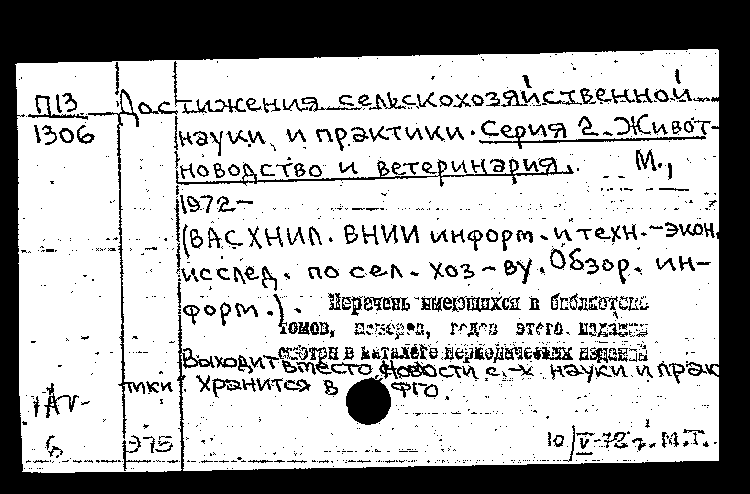 П13 Достижения сельскохозяйственной
1306 науки и практики. Серия 2. Живот-
новодство и ветеринария. М.,
1972-
(ВАСХНИЛ. ВНИИ информ. и техн.-экон.
исслед. по сел. хоз-ву. Обзор. ин-
форм.). Перечень имеющихся в библиотеке
томов, номеров, годов этого издания
смотри в каталоге периодических изданий
Выходит вместо Новости с.-х. науки и прак
тики. Хранится в ФГО.
6 975 10/V-72 г. М.Т.